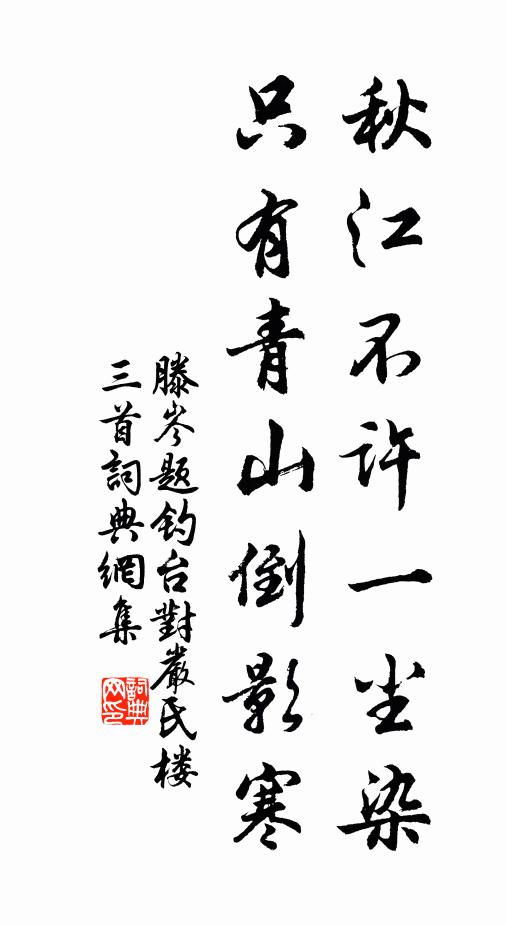 秋江不许一尘染
只有青山倒影寒
滕岑题钓台對嚴氏楼
三首詞典網集
詞典网印